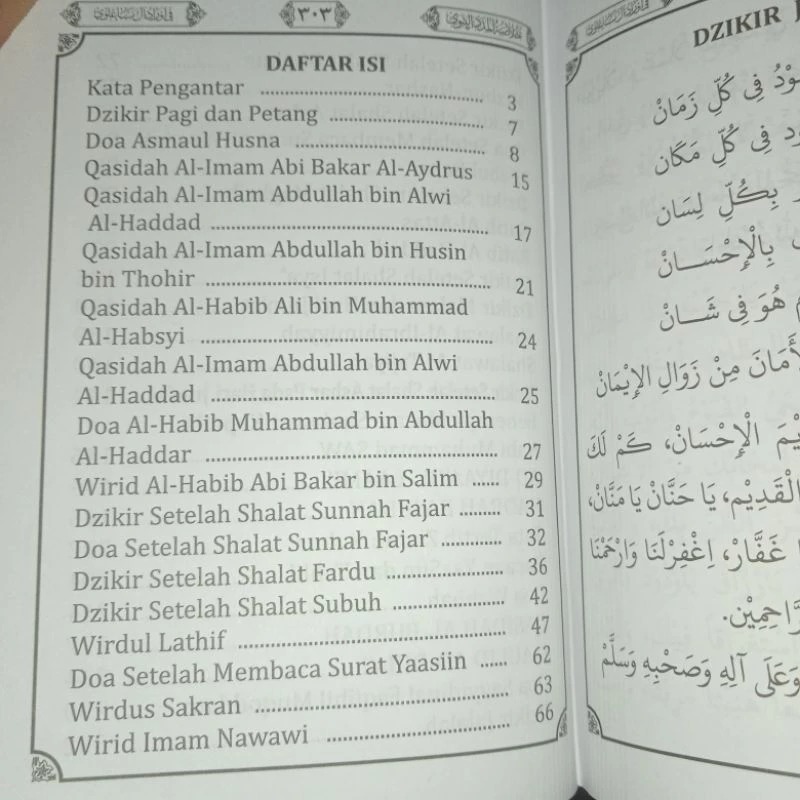 ٣٠٣
DAFTAR ISI
Kata Pengantar ........................................ 3
Dzikir Pagi dan Petang ........................... 7
Doa Asmaul Husna ................................. 8
Qasidah Al-Imam Abi Bakar Al-Aydrus 15
Qasidah Al-Imam Abdullah bin Alwi
Al-Haddad ................................................ 17
Qasidah Al-Imam Abdullah bin Husin
bin Thohir ................................................ 21
Qasidah Al-Habib Ali bin Muhammad
Al-Habsyi ................................................. 24
Qasidah Al-Imam Abdullah bin Alwi
Al-Haddad ................................................ 25
Doa Al-Habib Muhammad bin Abdullah
Al-Haddar ................................................ 27
Wirid Al-Habib Abi Bakar bin Salim ...... 29
Dzikir Setelah Shalat Sunnah Fajar ......... 31
Doa Setelah Shalat Sunnah Fajar ............ 32
Dzikir Setelah Shalat Fardu ..................... 36
Dzikir Setelah Shalat Subuh .................... 42
Wirdul Lathif ............................................. 47
Doa Setelah Membaca Surat Yaasiin ...... 62
Wirdus Sakran .......................................... 63
Wirid Imam Nawawi ................................ 66
DZIKIR
فِي كُلِّ زَمَانْ
فِي كُلِّ مَكَان
بِكُلِّ لِسَان
بِالْإِحْسَـــانْ
هُوَ فِي شَـــانْ
مِنْ زَوَالِ الإِيْمَانْ
الْإِحْسَانْ، كَمْ لَكَ
الْقَدِيْمِ، يَا حَنَّانْ يَا مَنَّانْ،
غَفَّارْ، اِغْفِرْلَنَا وَارْحَمْنَا
وَعَلَى آلِهِ وَصَحْبِهِ وَسَلَّمْ